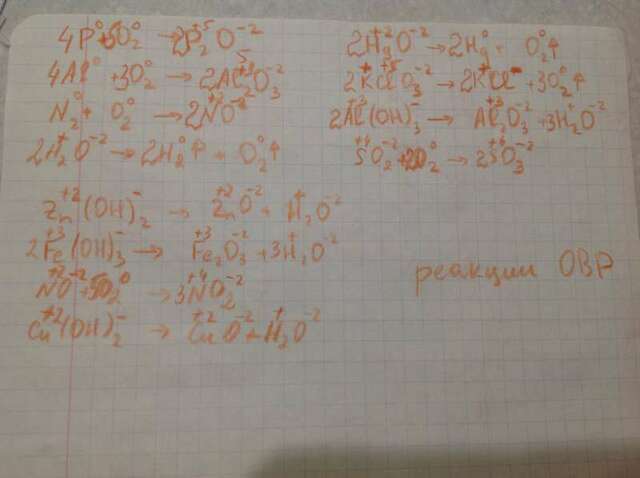 4P⁰ + 5O₂⁰ → 2P₂⁺⁵O₅⁻²
4Al⁰ + 3O₂⁰ → 2Al₂⁺³O₃⁻²
N₂⁰ + O₂⁰ → 2N⁺²O⁻²
2H₂⁺O⁻² → 2H₂⁰↑ + O₂⁰↑
Zn⁺²(OH)₂⁻ → Zn⁺²O⁻² + H₂⁺O⁻²
2Fe⁺³(OH)₃⁻ → Fe₂⁺³O₃⁻² + 3H₂⁺O⁻²
N⁺²O⁻² + O₂⁰ → 3N⁺⁴O₂⁻²
Cu⁺²(OH)₂⁻ → Cu⁺²O⁻² + H₂⁺O⁻²
2Hg⁺²O⁻² → 2Hg⁰ + O₂⁰↑
2K⁺Cl⁺⁵O₃⁻² → 2K⁺Cl⁻ + 3O₂⁰↑
2Al⁺³(OH)₃⁻ → Al₂⁺³O₃⁻² + 3H₂⁺O⁻²
S⁺⁴O₂⁻² + 2O₂⁰ → 2S⁺⁴O₃⁻²
реакции ОВР